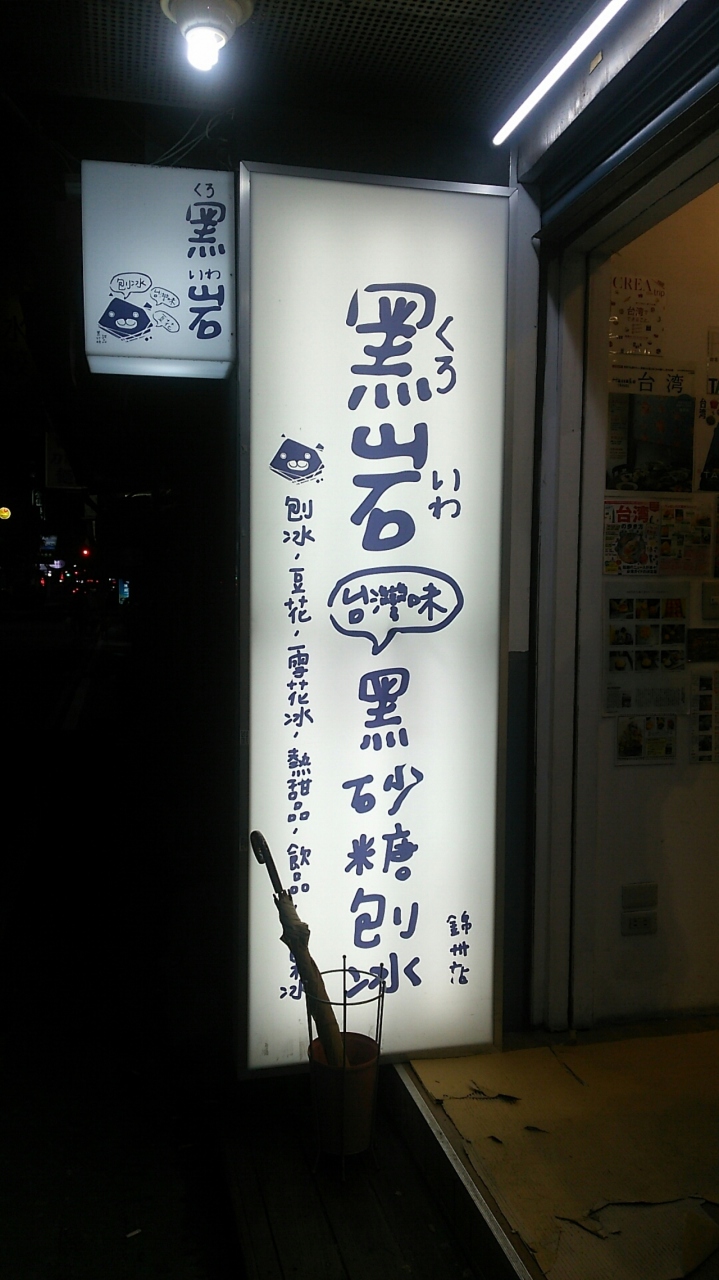 黑岩
くろ
いわ
台灣味
黑砂糖刨冰
錦州店
刨冰，豆花，雪花冰，熱甜品，飲品
冰
くろ
黑
いわ
岩
刨冰
台灣味
CREA
台湾
台湾
台湾